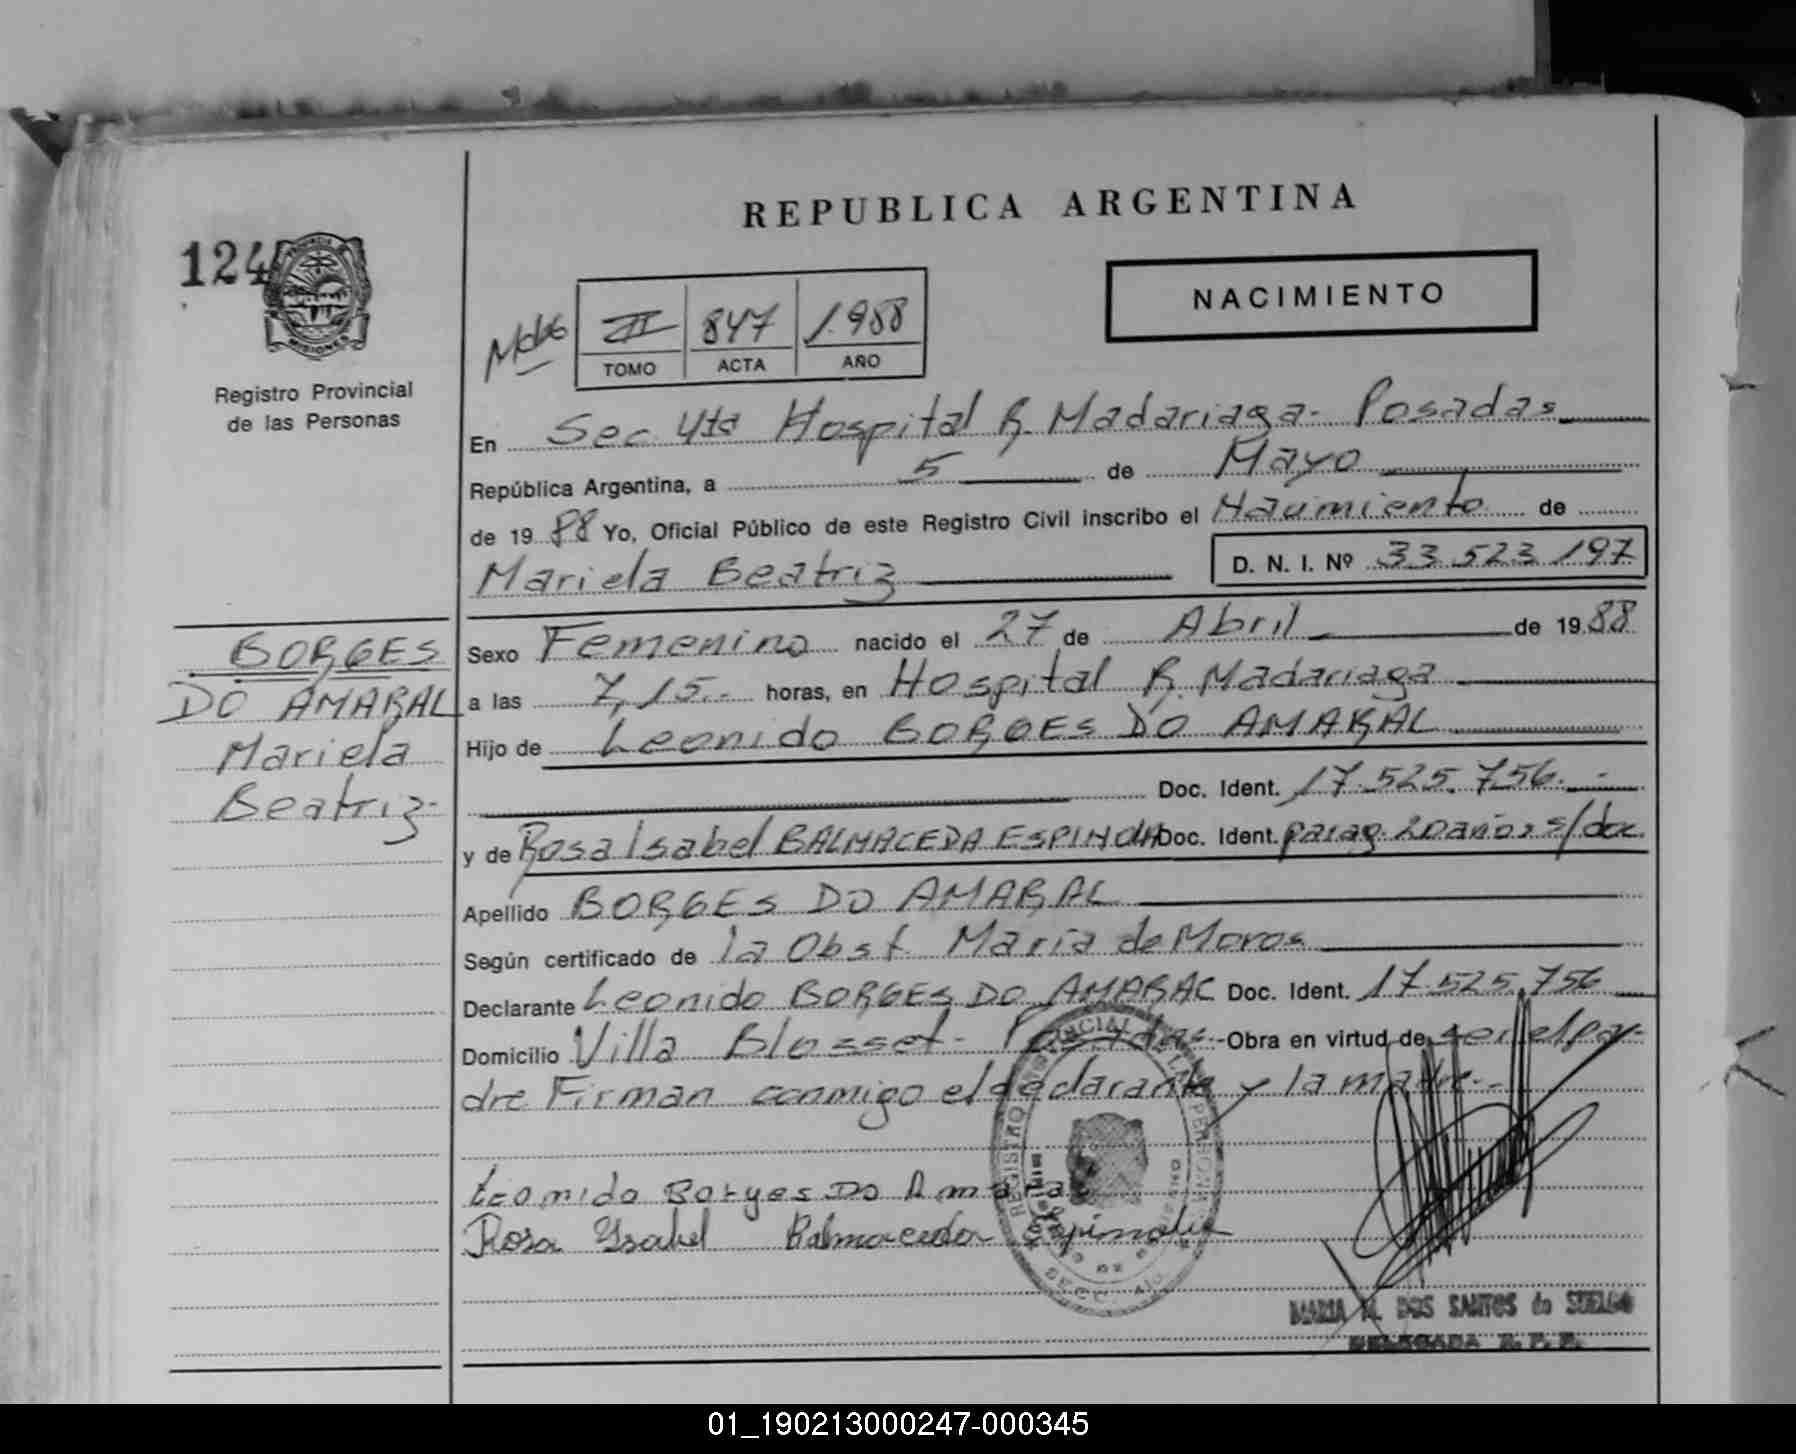 REPUBLICA ARGENTINA
124
MISIONES
Registro Provincial
de las Personas
NACIMIENTO
II 847 1.988
TOMO ACTA AÑO
En Sec 4ta Hospital R. Madariaga- Posadas
República Argentina, a 5 de Mayo
de 19 88 Yo, Oficial Público de este Registro Civil inscribo el Nacimiento de
Mariela Beatriz D. N. I. Nº 33.523.197
BORGES
DO AMARAL
Mariela
Beatriz-
Sexo Femenino nacido el 27 de Abril de 19 88
a las 7,15.- horas, en Hospital R. Madariaga
Hijo de Leonido BORGES DO AMARAL
Doc. Ident. 17.525.756.-
y de Rosa Isabel BALMACEDA ESPINOLA Doc. Ident. parag. 20 años s/doc
Apellido BORGES DO AMARAL
Según certificado de la Obst. Maria de Moros
Declarante Leonido BORGES DO AMARAL Doc. Ident. 17.525.756
Domicilio Villa Blosset- Posadas- Obra en virtud de ser el pa-
dre Firman conmigo el declarante y la madre.-
Leonido Borges Do Amaral
Rosa Ysabel Balmaceda Espinola
MARIA M. DOS SANTOS de SUELDO
DELEGADA R. P. P.
01_190213000247-000345